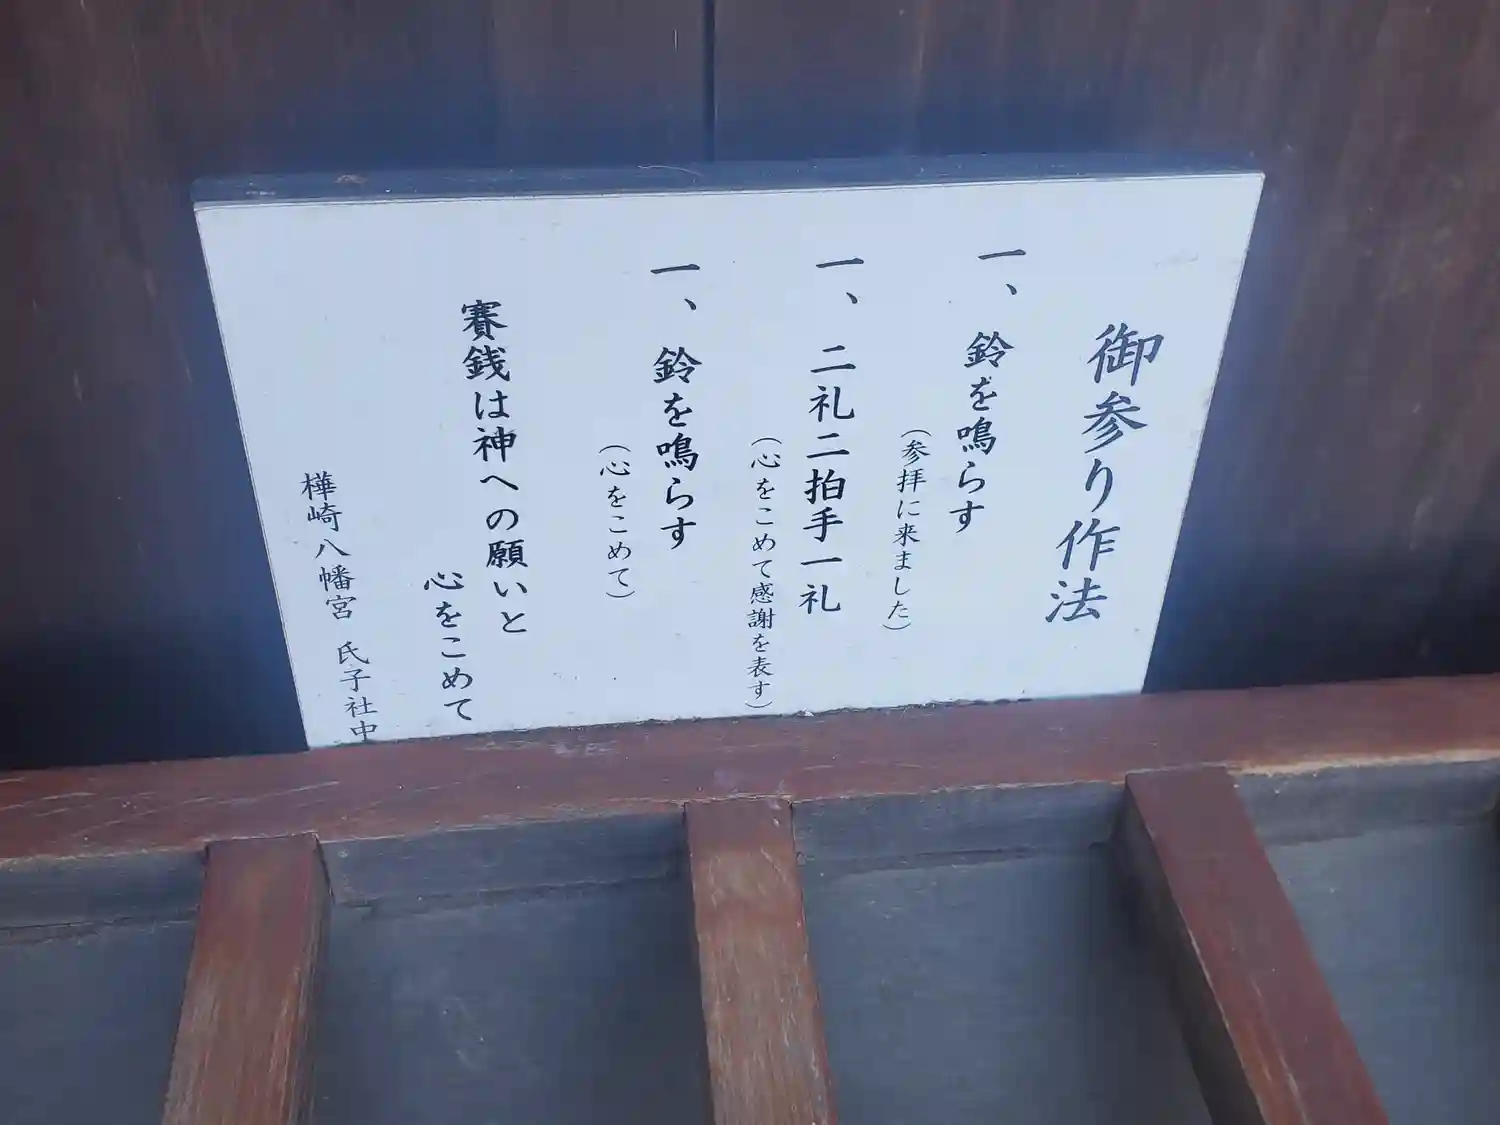 御参り作法
一、鈴を鳴らす
(参拝に来ました)
一、二礼二拍手一礼
(心をこめて感謝を表す)
一、鈴を鳴らす
(心をこめて)
賽銭は神への願いと
心をこめて
樺崎八幡宮 氏子社中